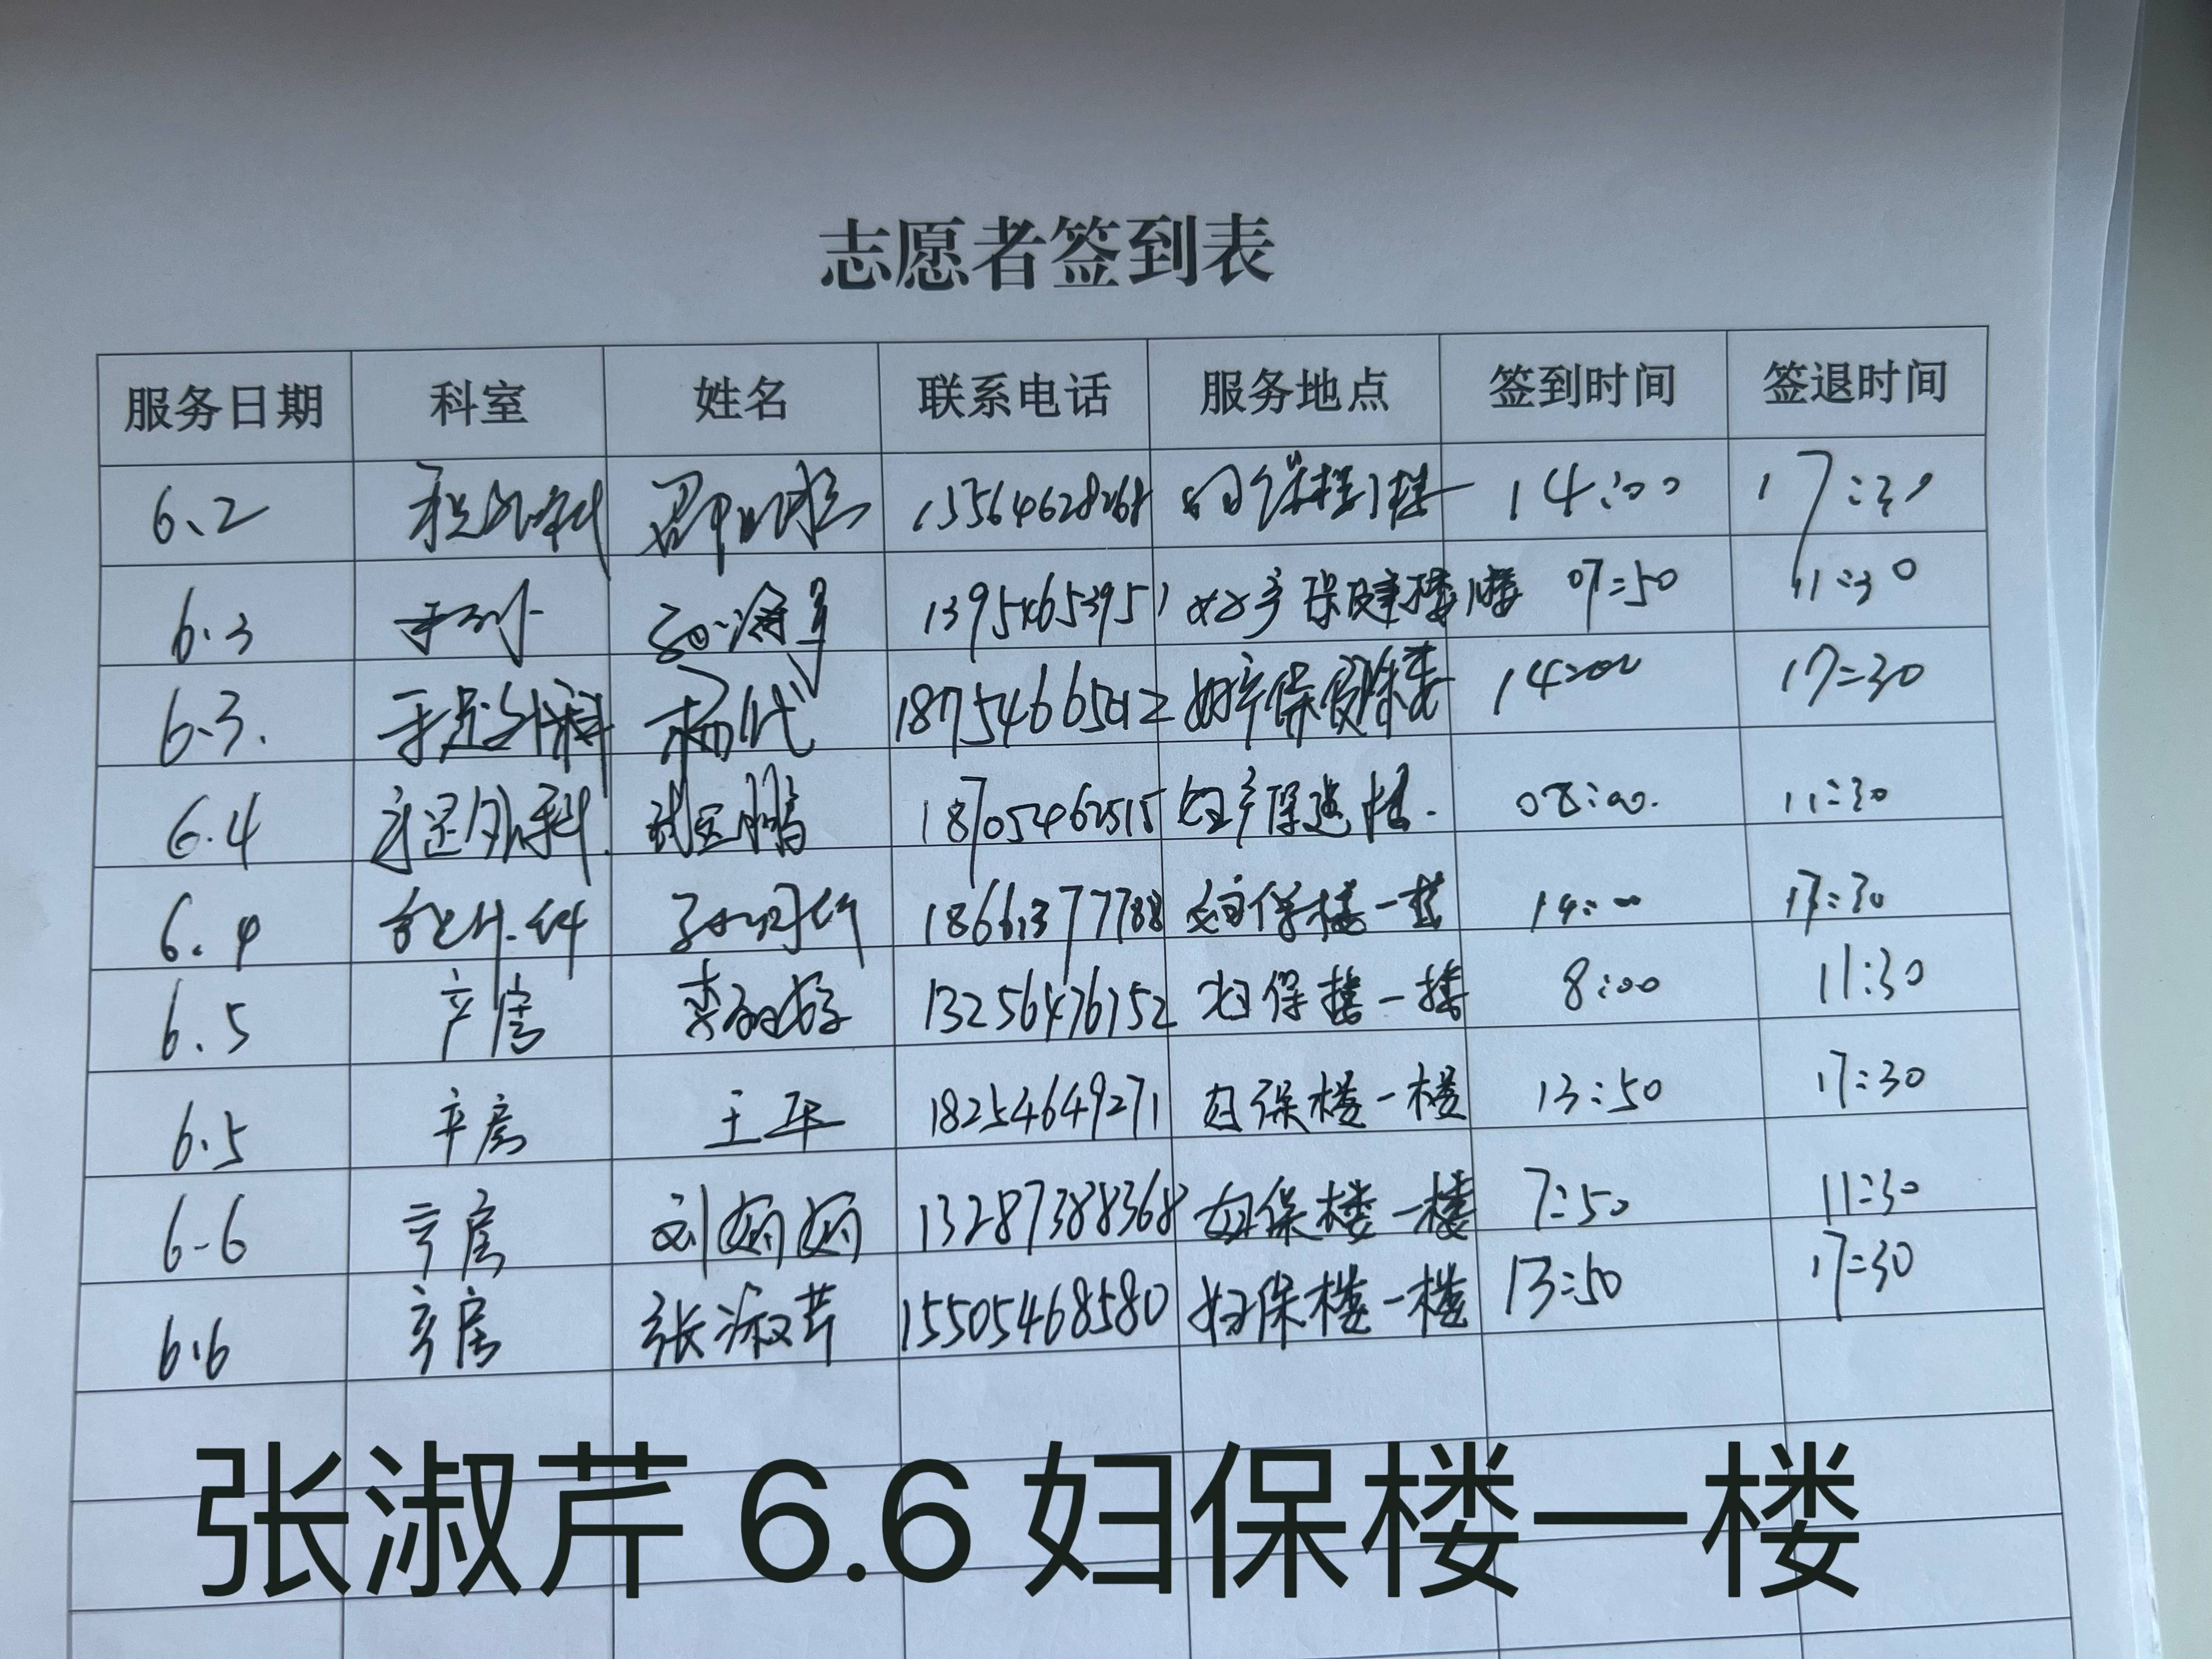 志愿者签到表
服务日期 科室 姓名 联系电话 服务地点 签到时间 签退时间
6.2 15564628268 妇保楼1楼 14:00 17:30
6.3 手外 13954653951 妇产保健楼1楼 07:50 11:30
6.3. 手足外科 杨代 18754665012 妇产保健楼 14:00 17:30
6.4 手足外科. 鹏 18705462515 妇产保健楼. 08:00. 11:30
6.4 外科 18661377788 妇保楼一楼 14:00 17:30
6.5 产房 13256476752 妇保楼一楼 8:00 11:30
6.5 产房 王平 18254649271 妇保楼一楼 13:50 17:30
6-6 产房 刘娴娴 13287388368 妇保楼一楼 7:50 11:30
6.6 产房 张淑芹 15505468580 妇保楼一楼 13:50 17:30
张淑芹 6.6 妇保楼一楼